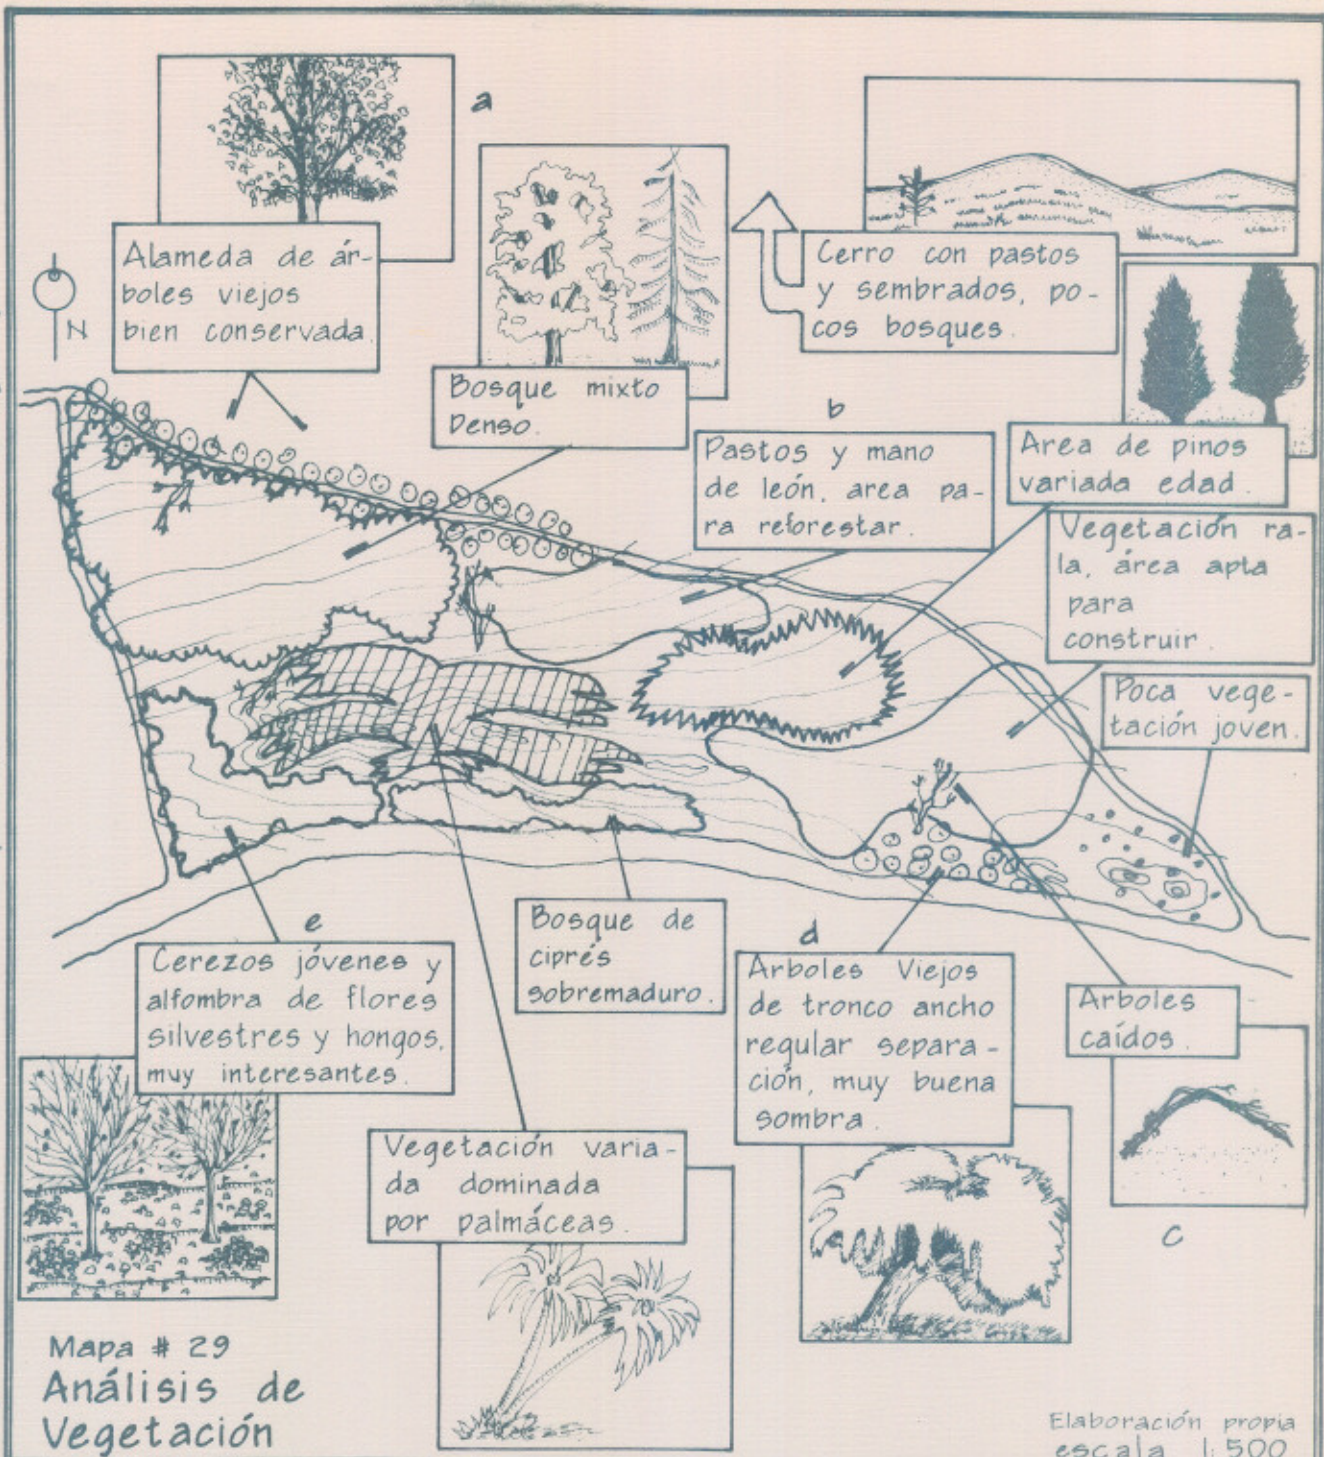 a
Alameda de ár-
boles viejos
bien conservada.
N
Bosque mixto
Denso.
Cerro con pastos
y sembrados, po-
cos bosques.
b
Pastos y mano
de león, area pa-
ra reforestar.
Area de pinos
variada edad.
Vegetación ra-
la, área apta
para
construir.
Poca vege-
tación joven.
e
Cerezos jóvenes y
alfombra de flores
silvestres y hongos,
muy interesantes.
Bosque de
ciprés
sobremaduro.
d
Arboles Viejos
de tronco ancho
regular separa-
ción, muy buena
sombra.
Arboles
caídos.
c
Vegetación varia-
da dominada
por palmáceas.
Mapa # 29
Análisis de
Vegetación
Elaboración propia
escala 1:500